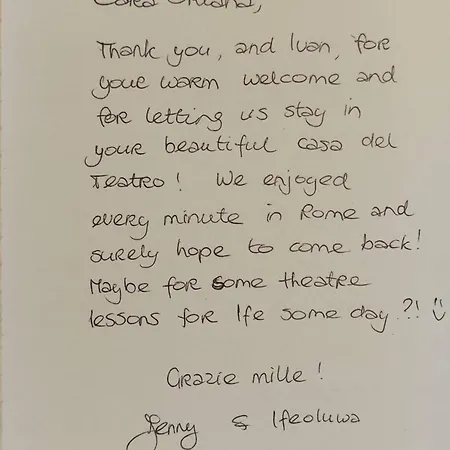 Thank you, and Ivan, for
your warm welcome and
for letting us stay in
your beautiful casa del
Teatro! We enjoyed
every minute in Rome and
surely hope to come back!
Maybe for some theatre
lessons for Ife some day ?! :)
Grazie mille!
Jenny & Ifeoluwa